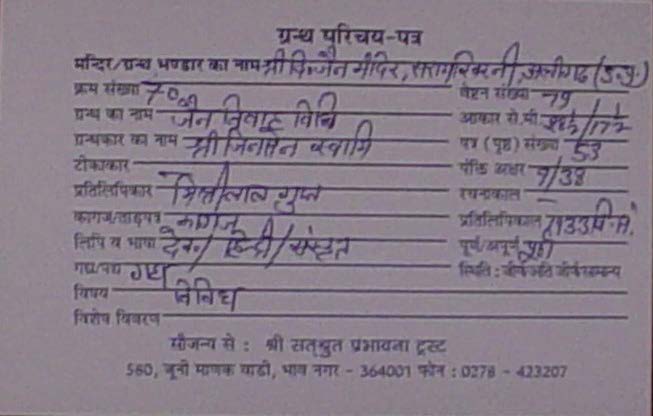 ग्रन्थ परिचय-पत्र
मन्दिर/ग्रन्थ भण्डार का नाम श्री दि. जैन मंदिर, अलीगढ़ (उ.प्र.)
क्रम संख्या 70 वेष्टन संख्या 79
ग्रन्थ का नाम जैन विवाह विधि आकार से.मी.
ग्रन्थकार का नाम श्री जिनसेन स्वामि पत्र (पृष्ठ) संख्या 53
टीकाकार पंक्ति अक्षर 9/38
प्रतिलिपिकार मिश्रीलाल गुप्त रचनाकाल –
कागज/ताड़पत्र कागज प्रतिलिपिकाल
लिपि व भाषा देव./हिन्दी/संस्कृत पूर्ण/अपूर्ण पूर्ण
गद्य/पद्य गद्य स्थिति : जीर्ण/अति जीर्ण/सामान्य
विषय विविध
विशेष विवरण
सौजन्य से : श्री सत्श्रुत प्रभावना ट्रस्ट
580, जूनी माणक वाडी, भाव नगर - 364001 फोन : 0278 - 423207